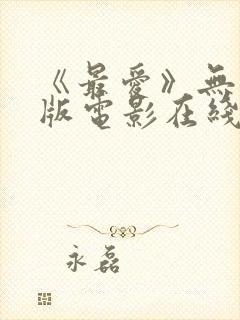 《最爱》無
版電影在綫
永磊